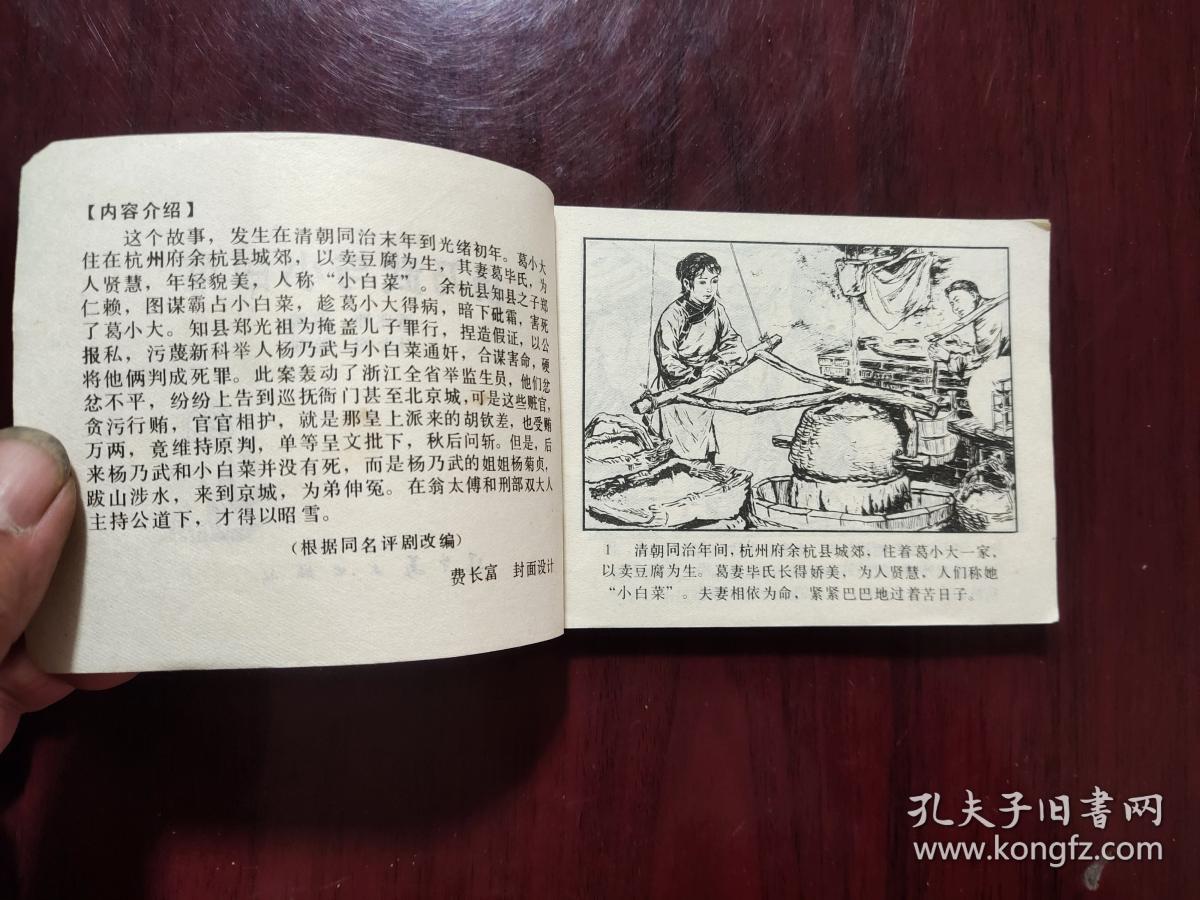 【内容介绍】
这个故事，发生在清朝同治末年到光绪初年。葛小大
住在杭州府余杭县城郊，以卖豆腐为生，其妻葛毕氏，为
人贤慧，年轻貌美，人称“小白菜”。余杭县知县之子郑
仁赖，图谋霸占小白菜，趁葛小大得病，暗下砒霜，害死
了葛小大。知县郑光祖为掩盖儿子罪行，捏造假证，以公
报私，污蔑新科举人杨乃武与小白菜通奸，合谋害命，硬
将他俩判成死罪。此案轰动了浙江全省举监生员，他们忿
忿不平，纷纷上告到巡抚衙门甚至北京城，可是这些赃官，
贪污行贿，官官相护，就是那皇上派来的胡钦差，也受贿
万两，竟维持原判，单等呈文批下，秋后问斩。但是，后
来杨乃武和小白菜并没有死，而是杨乃武的姐姐杨菊贞，
跋山涉水，来到京城，为弟伸冤。在翁太傅和刑部双大人
主持公道下，才得以昭雪。
（根据同名评剧改编）
费长富 封面设计
1 清朝同治年间，杭州府余杭县城郊，住着葛小大一家，
以卖豆腐为生。葛妻毕氏长得娇美，为人贤慧，人们称她
“小白菜”。夫妻相依为命，紧紧巴巴地过着苦日子。
孔夫子旧書网
www.kongfz.com